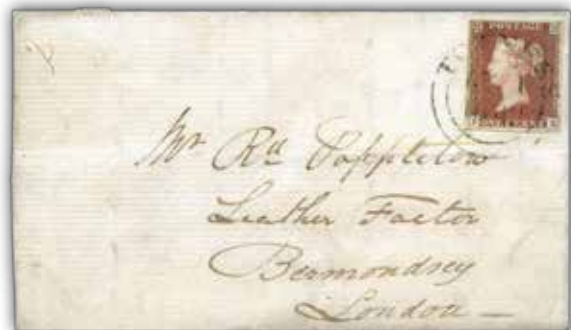 POSTAGE
Mr Rd Popplelow
Leather Factor
Bermondsey
London